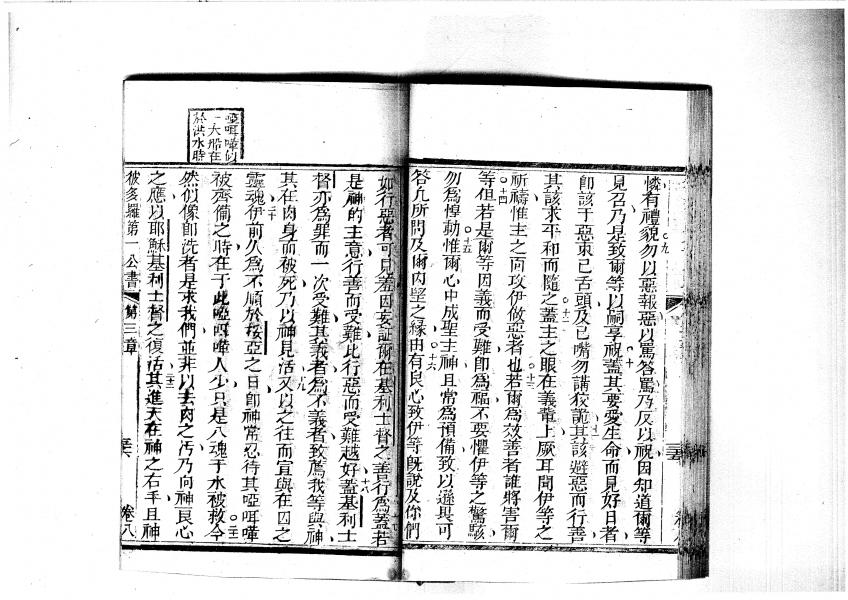 憐有禮貌勿以惡報惡以罵答罵乃反以祝因知道爾等
九
見召乃是致爾等以嗣享祝蓋其要愛生命而見好日者
十
即該于惡束已舌頭及已嘴勿講狡詭其該避惡而行善
十一
其該求平和而隨之蓋主之眼在義輩上厥耳聞伊等之
十二
祈禱惟主之向攻伊做惡者也若爾為效善者誰將害爾
十三
等但若是爾等因義而受難即為福不要懼伊等之驚駭
十四
勿為悼動惟爾心中成聖主神且常為預備致以遜畏可
十五
答凡所問及爾內望之緣由有良心致伊等既說及你們
十六
如行惡者可見羞因妄証爾在基利士督之善行為蓋若
十七
是神的主意行善而受難比行惡而受難越好蓋基利士
十八
督亦為罪而一次受難其義者為不義者致薦我等與神
其在肉身而被死乃以神見活又以之往而宣與在囚之
十九
靈魂伊前久為不順於挼亞之日即神常忍待其啞咡嗶
二十
被齊備之時在于此啞咡嗶人少只是八魂于水被救今
二一
然似像即洗者是求我們並非以去肉之污乃向神良心
之應以耶穌基利士督之復活其進天在神之右手且神
二二
啞咡嗶似
一大船在
於洪水時
彼多羅第一公書
第三章
卷八